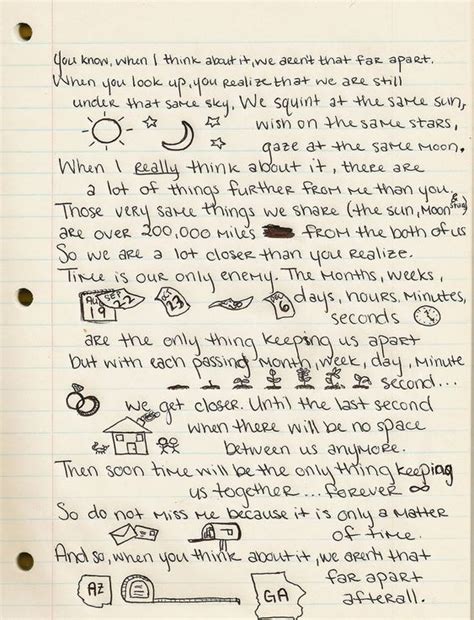 You know, when I think about it, we aren't that far apart.
When you look up, you realize that we are still
under that same sky. We squint at the same sun,
wish on the same stars,
gaze at the same moon.
When I really think about it, there are
a lot of things further from me than you.
Those very same things we share (the sun, moon stars)
are over 200,000 miles from the both of us
So we are a lot closer than you realize.
Time is our only enemy. The months, weeks,
Aug 19 Sep 22 Oct 23 6
days, hours, minutes,
seconds
are the only thing keeping us apart
but with each passing month, week, day, minute
second...
we get closer. Until the last second
when there will be no space
between us anymore.
Then soon time will be the only thing keeping
us together... forever ∞
So do not miss me because it is only a matter
of time.
And so, when you think about it, we aren't that
far apart
afterall.
AZ GA